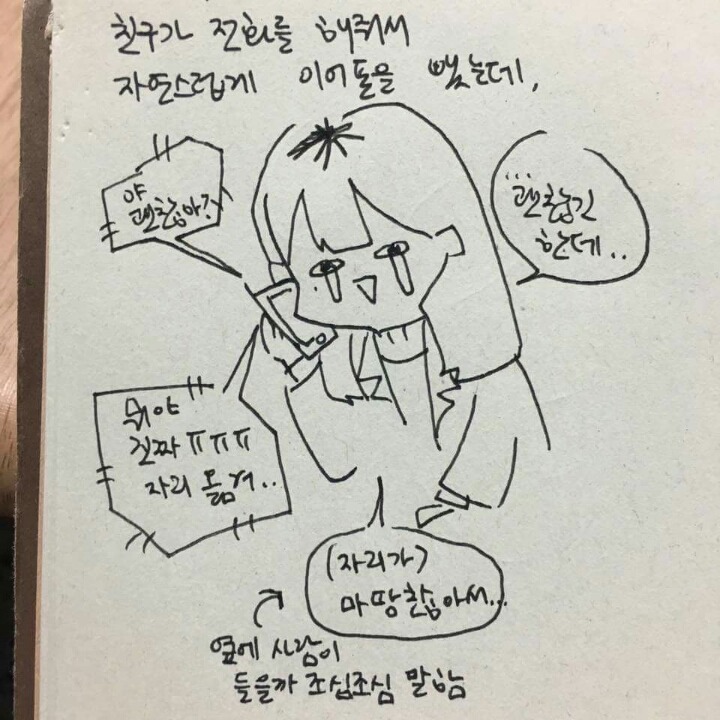 친구가 전화를 해줘서
자연스럽게 이어폰을 뺐는데,
야
괜찮아?
...괜찮긴
한데..
뭐야
진짜 ㅠㅠㅠ
자리 옮겨..
(자리가)
마땅찮아서...
옆에 사람이
들을까 조심조심 말함